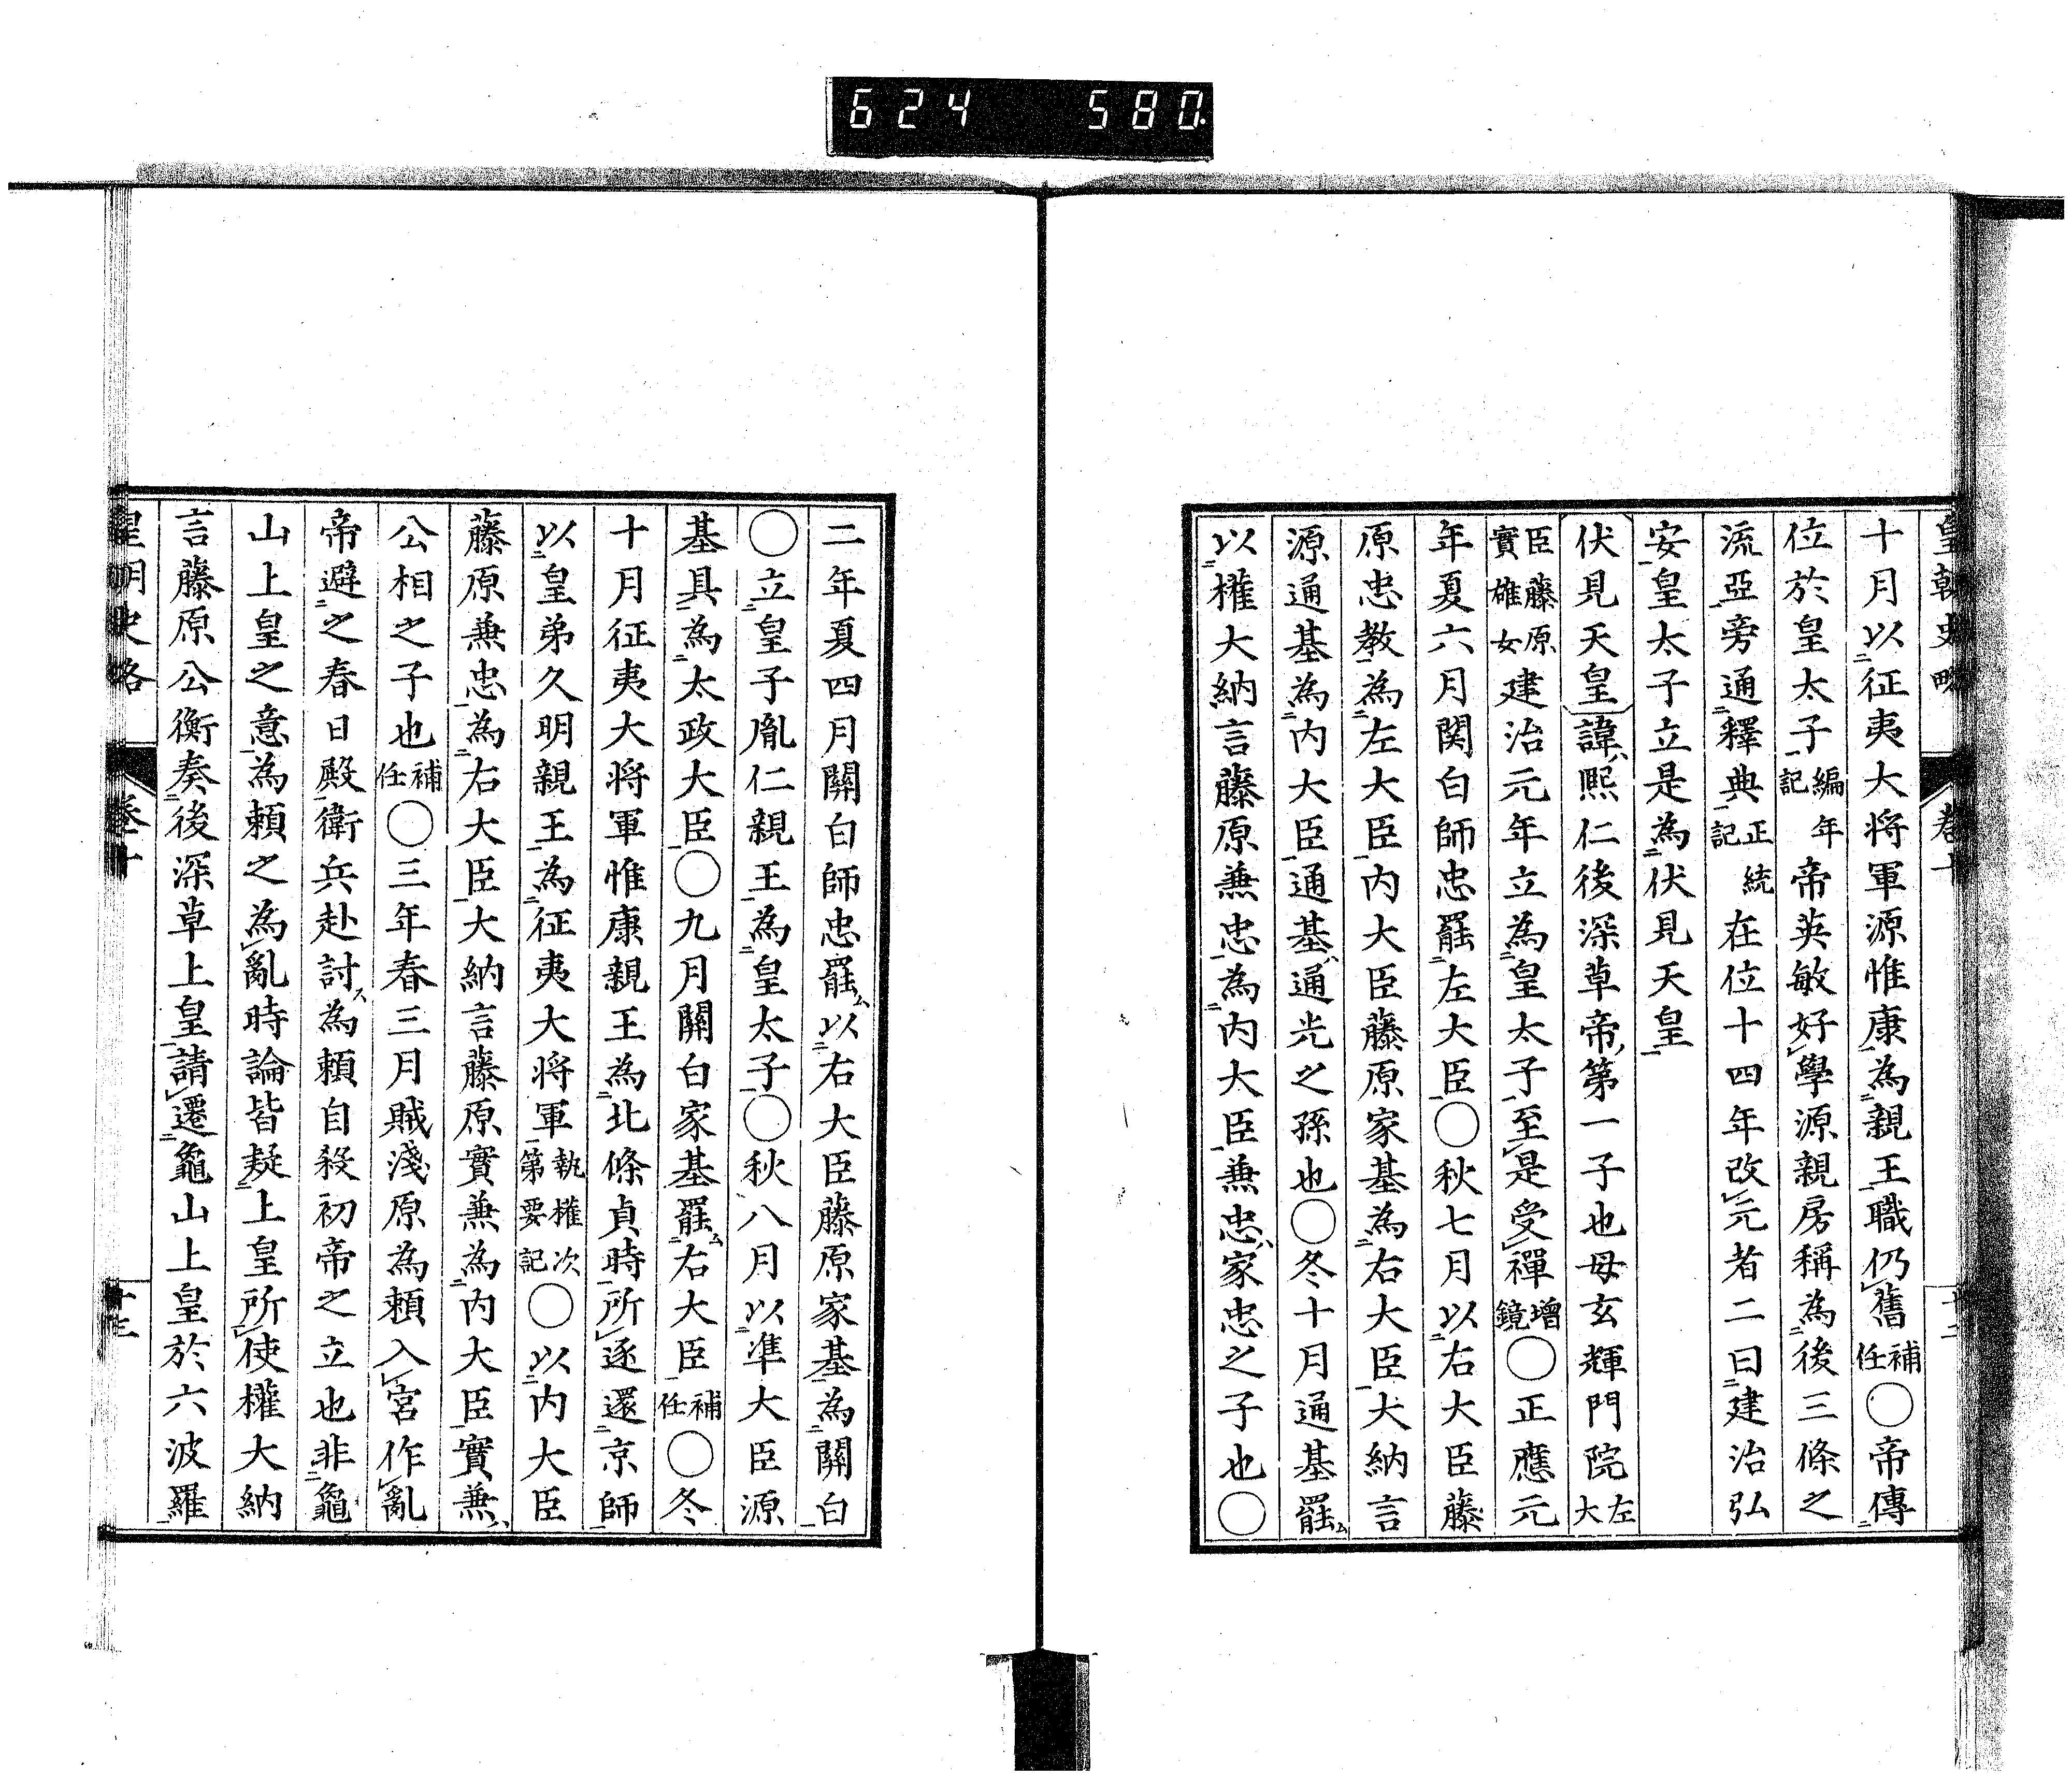 624 580
皇朝史略 卷十
十月以征夷大将軍源惟康為親王職仍舊補任〇帝傳
位於皇太子編年記帝英敏好學源親房稱為後三條之
流亞旁通釋典正統記在位十四年改元者二曰建治弘
安皇太子立是為伏見天皇
伏見天皇諱熙仁後深草帝第一子也母玄輝門院左大
臣藤原實雄女建治元年立為皇太子至是受禪增鏡〇正應元
年夏六月関白師忠罷左大臣〇秋七月以右大臣藤
原忠教為左大臣内大臣藤原家基為右大臣大納言
源通基為内大臣通基通光之孫也〇冬十月通基罷
以權大納言藤原兼忠為内大臣兼忠家忠之子也〇
二年夏四月關白師忠罷以右大臣藤原家基為關白
〇立皇子胤仁親王為皇太子〇秋八月以準大臣源
基具為太政大臣〇九月關白家基罷右大臣補任〇冬
十月征夷大将軍惟康親王為北條貞時所逐還京師
以皇弟久明親王為征夷大将軍執權次第要記〇以内大臣
藤原兼忠為右大臣大納言藤原實兼為内大臣實兼
公相之子也補任〇三年春三月賊淺原為頼入宮作亂
帝避之春日殿衛兵赴討為頼自殺初帝之立也非龜
山上皇之意為頼之為亂時論皆疑上皇所使權大納
言藤原公衡奏後深草上皇請遷龜山上皇於六波羅
皇朝史略 卷十 十三